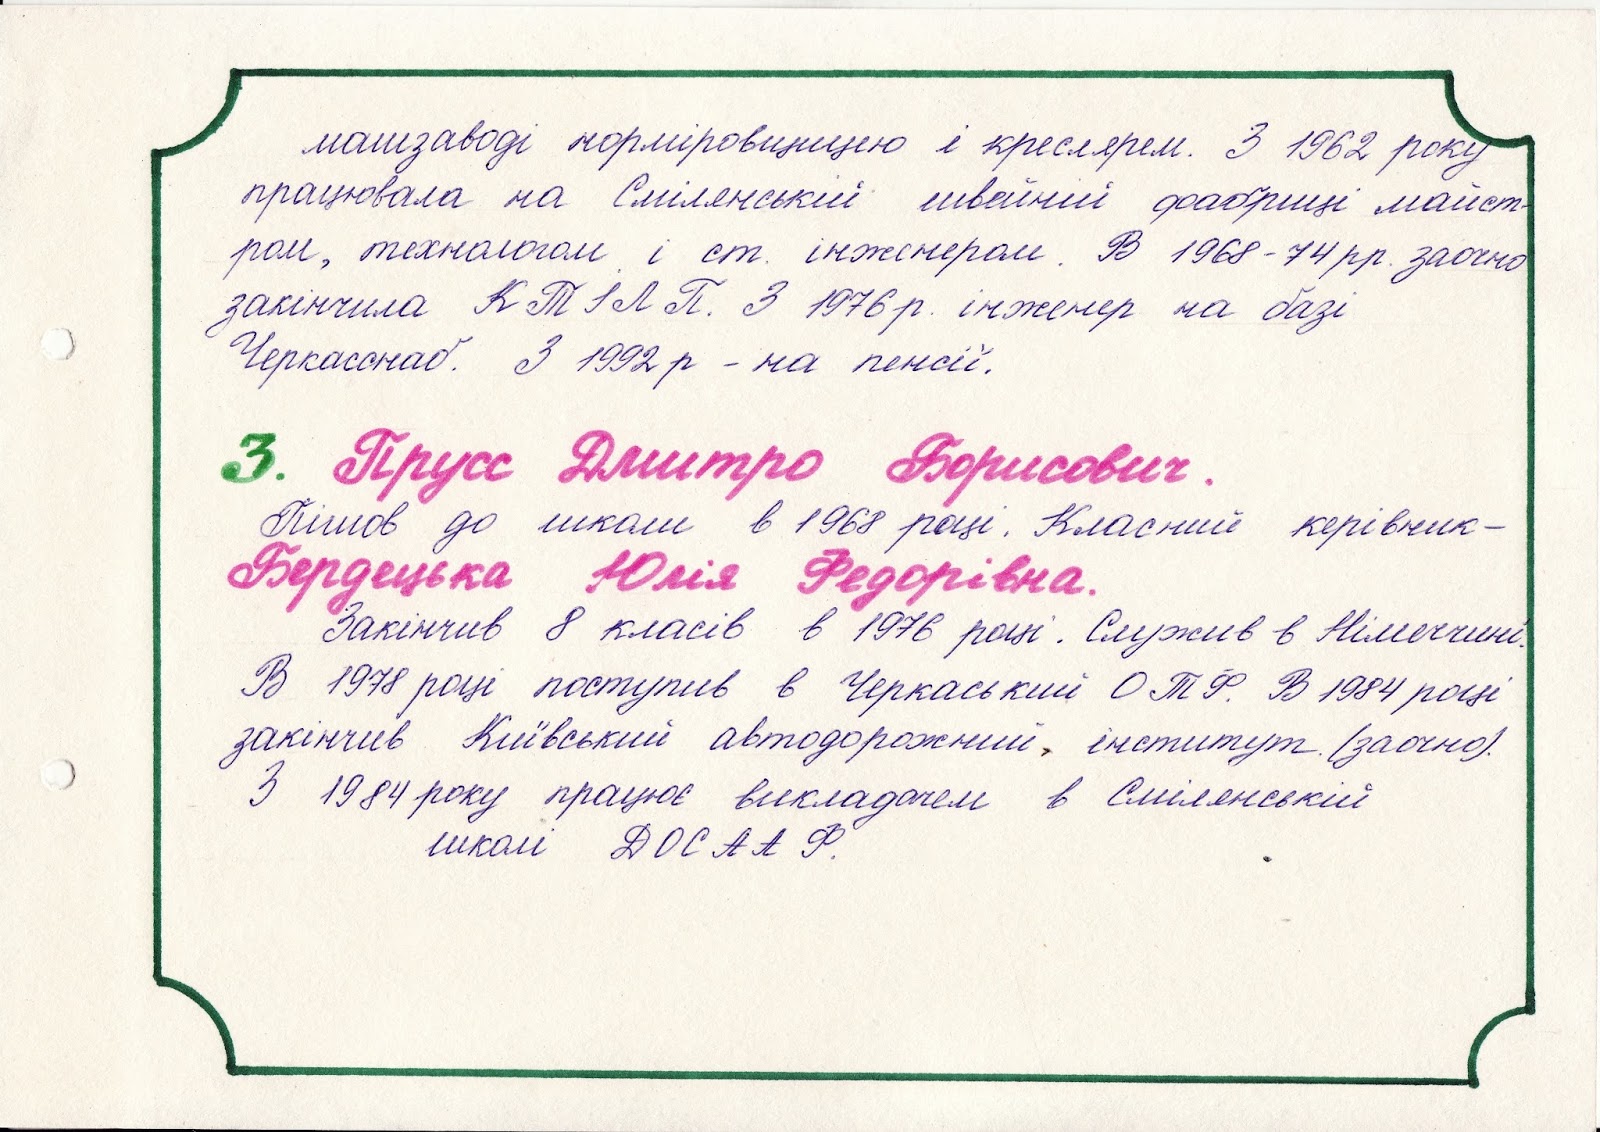 машзаводі норміровщицею і креслярем. З 1962 року
працювала на Смілянській швейній фабриці майст-
ром, технологом і ст. інженером. В 1968-74 рр. заочно
закінчила КТІЛП. З 1976 р. інженер на базі
Черкасснаб. З 1992 р - на пенсії.
3. Прусс Дмитро Борисович.
Пішов до школи в 1968 році. Класний керівник-
Бердецька Юлія Федорівна.
Закінчив 8 класів в 1976 році. Служив в Німеччині.
В 1978 році поступив в Черкаський ОТФ. В 1984 році
закінчив Київський автодорожний, інститут (заочно).
З 1984 року працює викладачем в Смілянській
школі ДОСААФ.